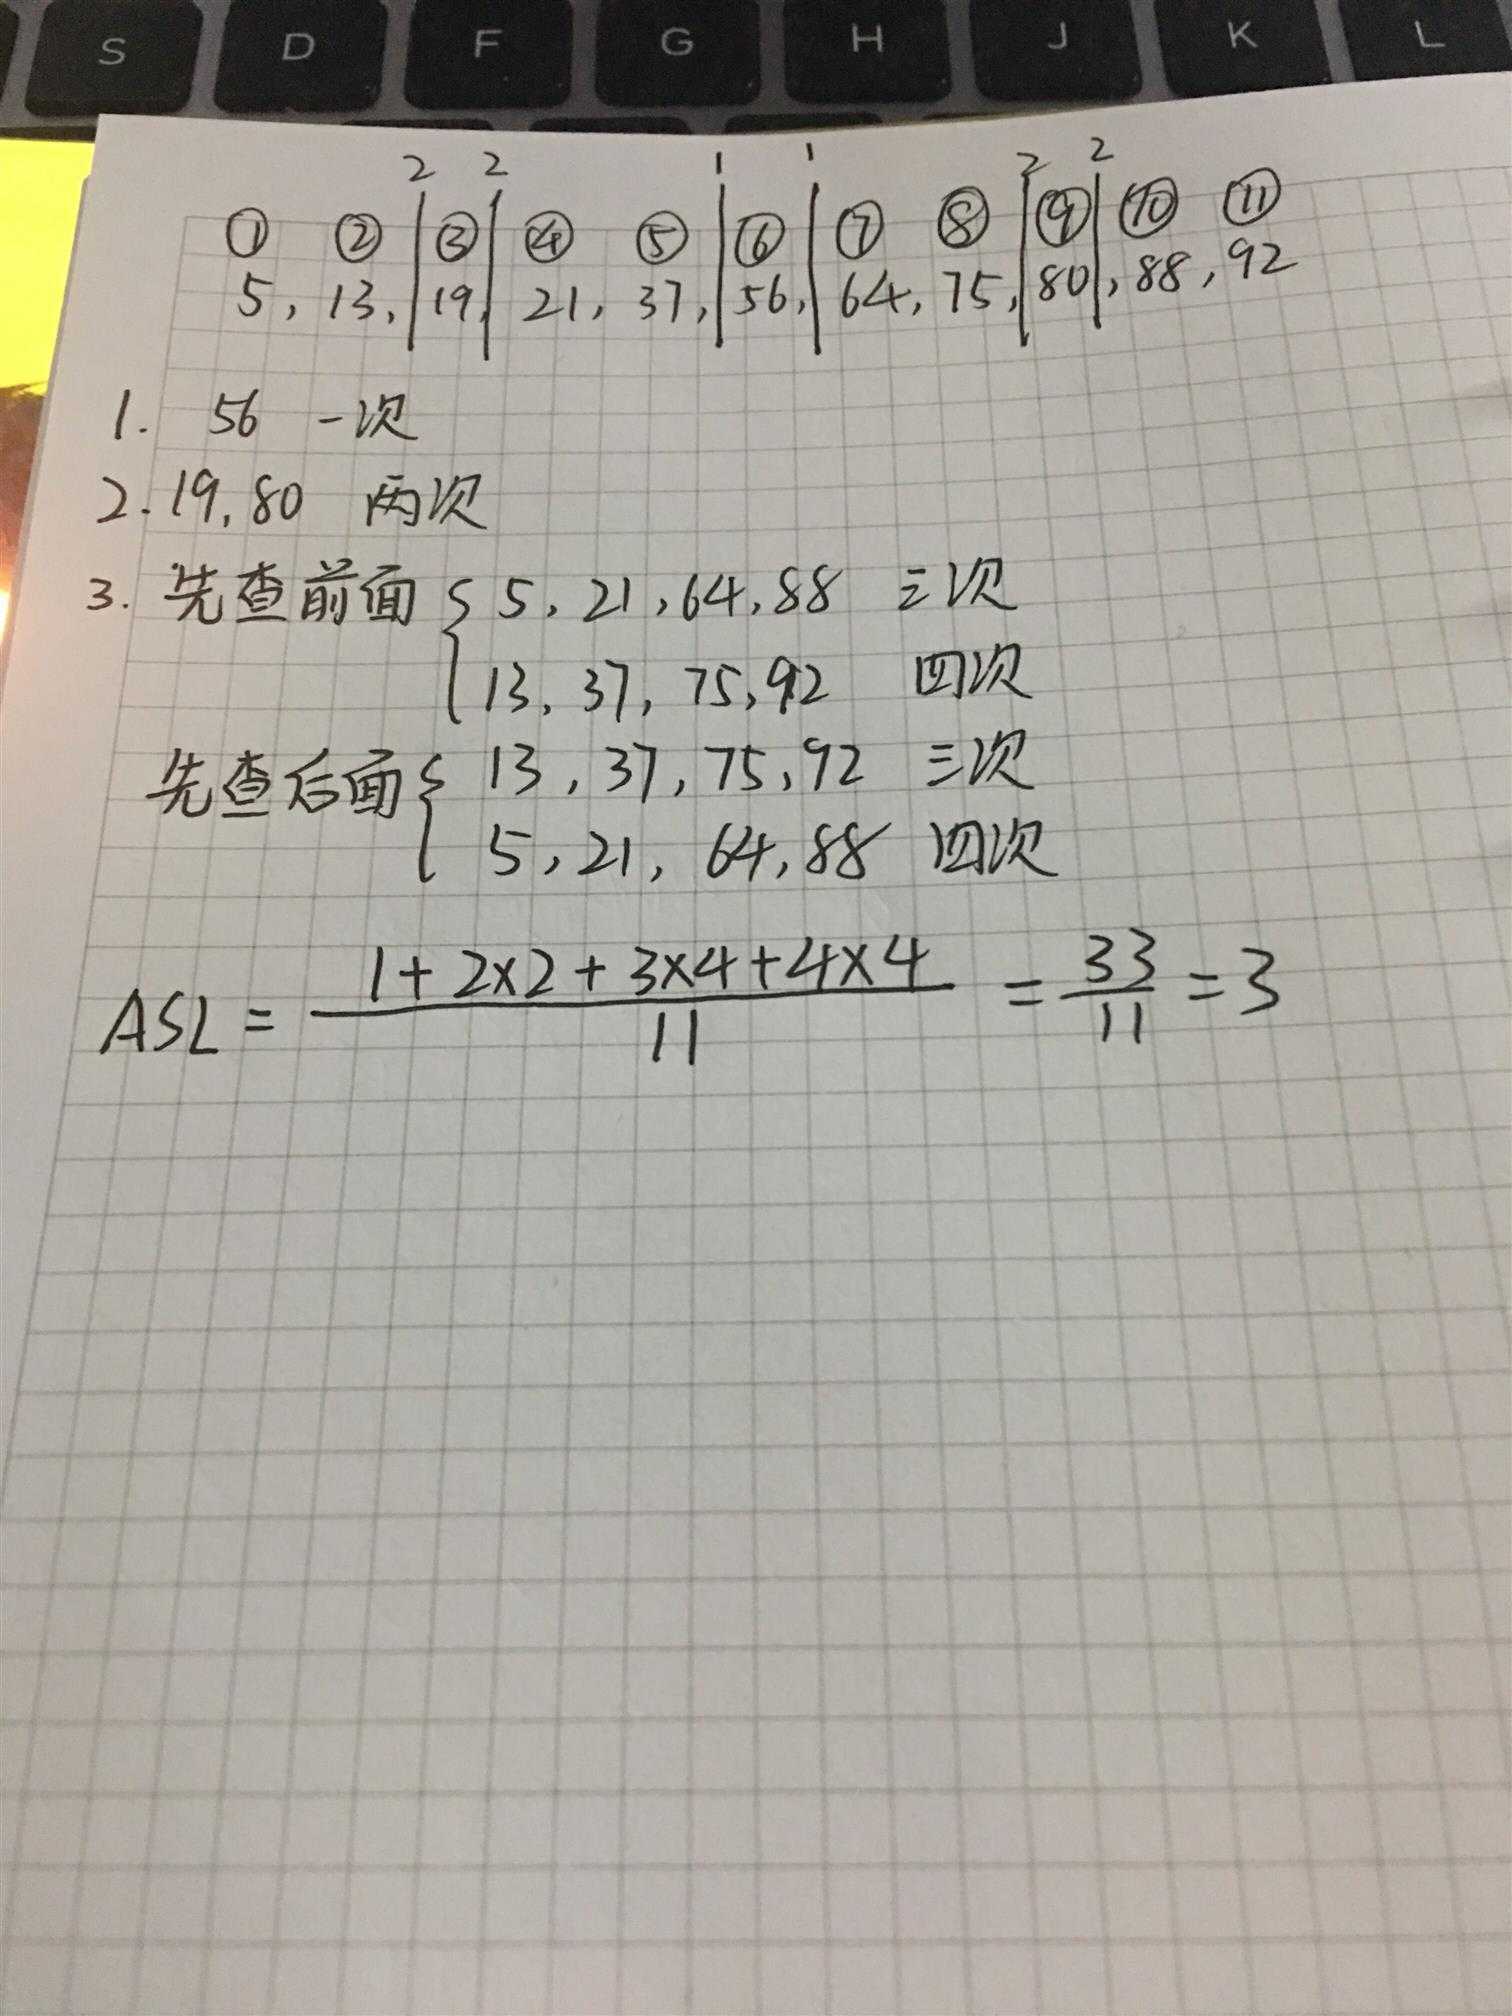 S D F G H J K L
2 2 1 1 2 2
① ② ③ ④ ⑤ ⑥ ⑦ ⑧ ⑨ ⑩ ⑪
5, 13, 19, 21, 37, 56, 64, 75, 80, 88, 92
1. 56 一次
2. 19, 80 两次
3. 先查前面 { 5, 21, 64, 88 三次
13, 37, 75, 92 四次
先查后面 { 13, 37, 75, 92 三次
5, 21, 64, 88 四次
1+2×2+3×4+4×4 33
ASL = = = 3
11 11